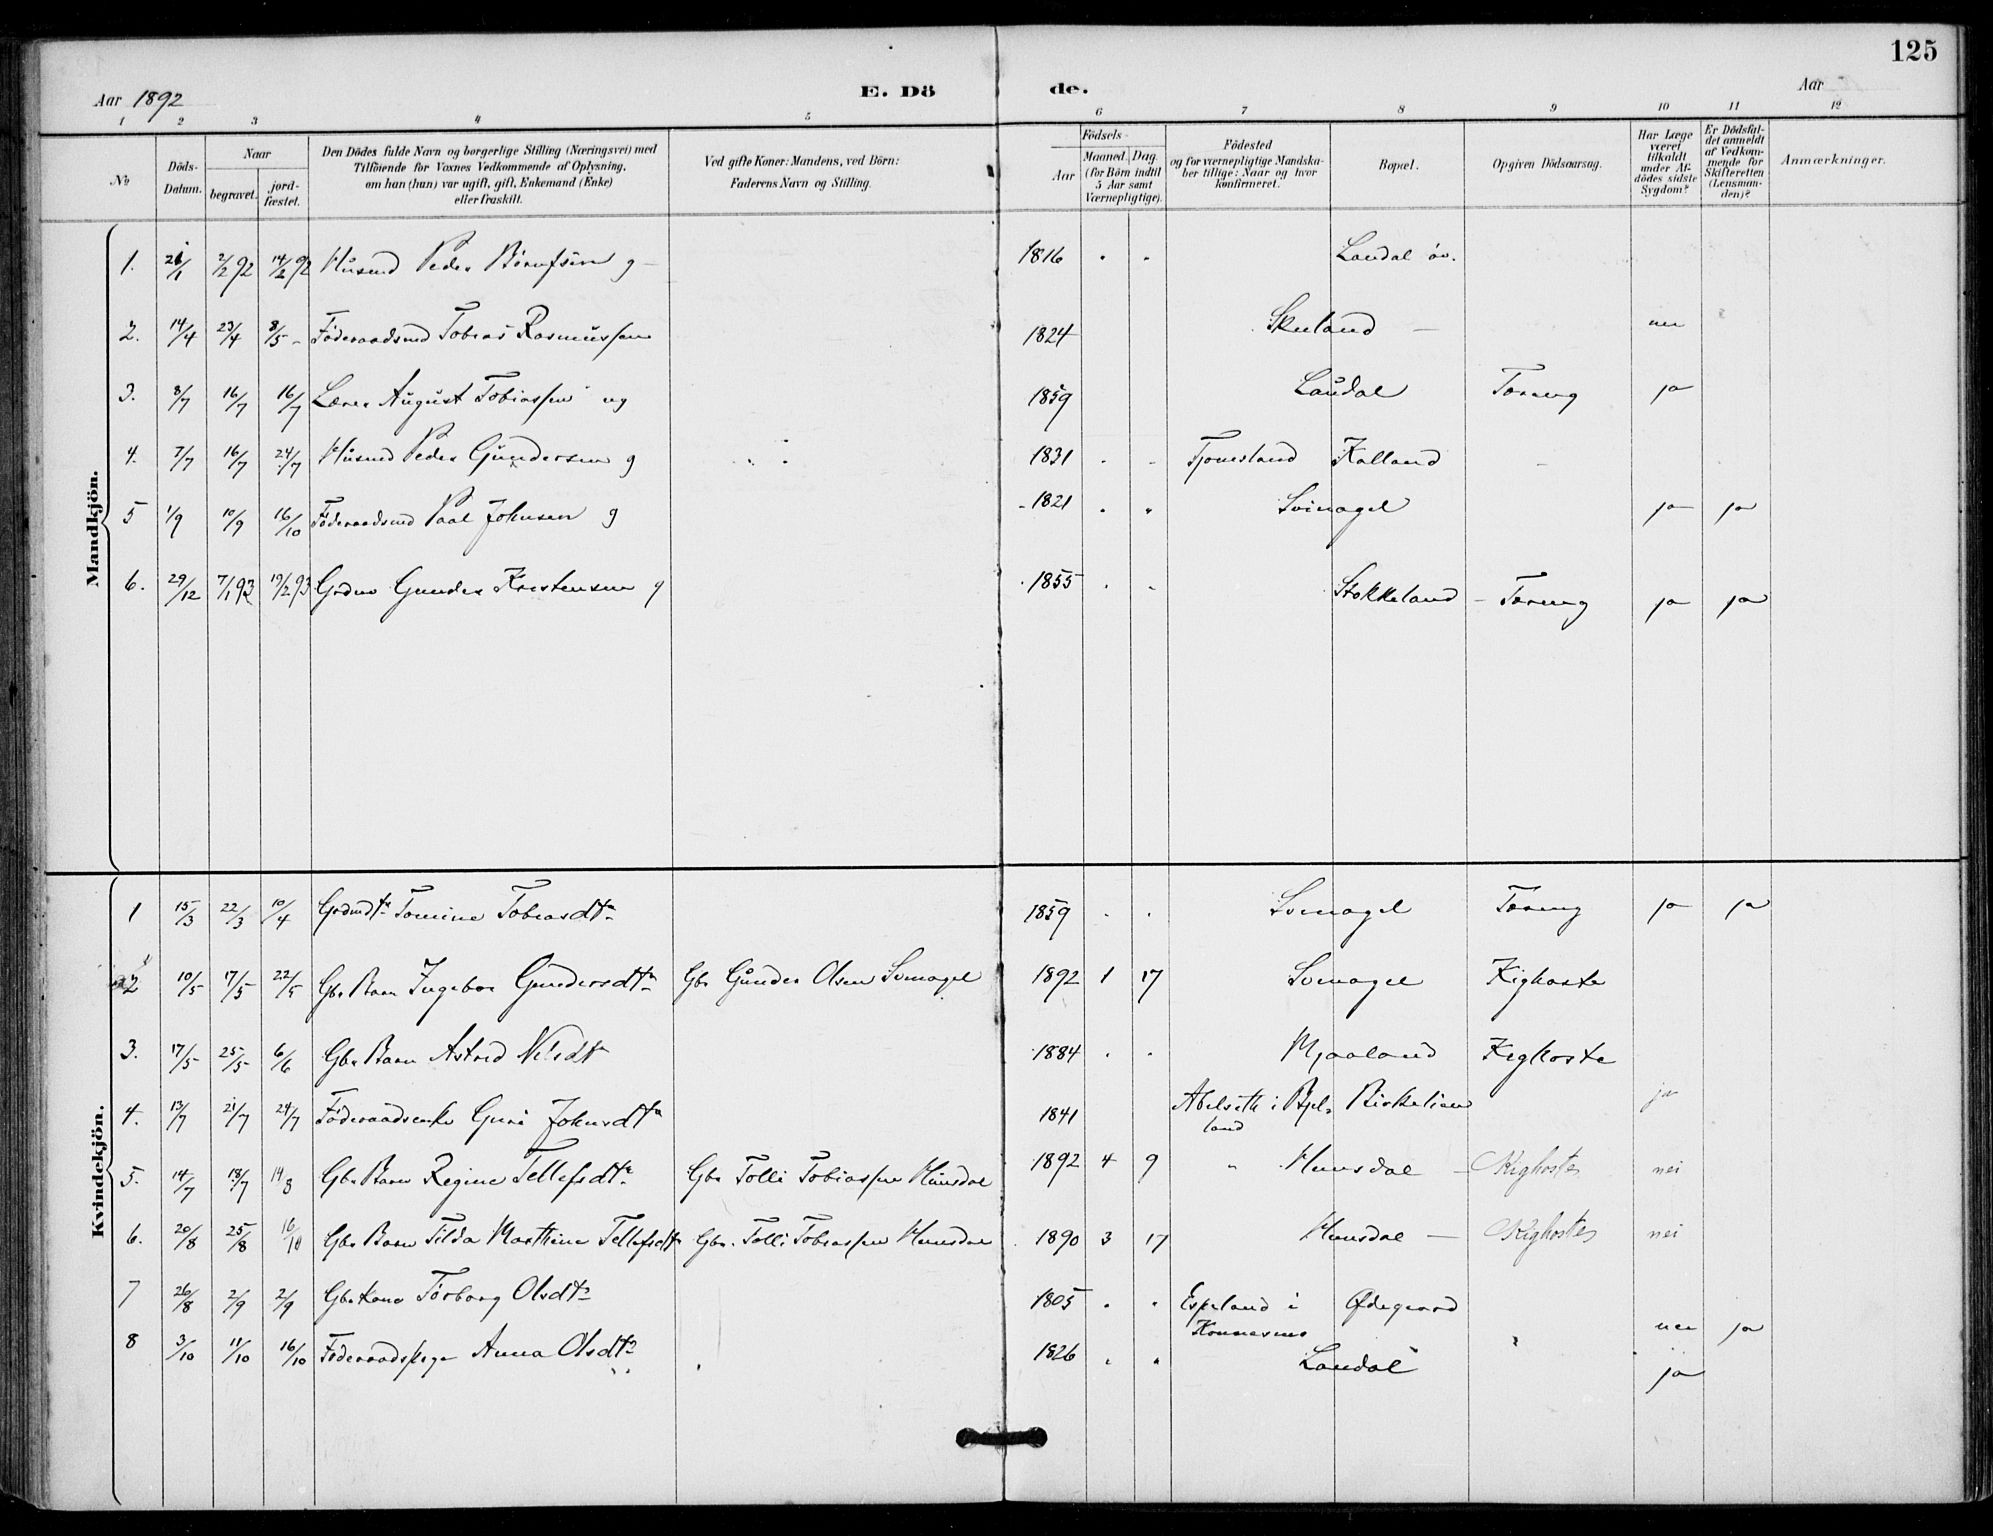 125
Aar 1892 E. Dö de. Aar
1 2 3 4 5 6 7 8 9 10 11 12
No
Döds-Datum.
Naar
begravet.
jord-fæstet.
Den Dödes fulde Navn og borgerlige Stilling (Næringsvei) med
Tilföiende for Voxnes Vedkommende af Oplysning,
om han (hun) var ugift, gift, Enkemand (Enke)
eller fraskilt.
Ved gifte Koner: Mandens, ved Börn:
Faderens Navn og Stilling.
Födsels-
Aar
Maaned. Dag.
(for Börn indtil
5 Aar samt
Værnepligtige).
Födested
og for værnepligtige Mandska-
ber tillige: Naar og hvor
konfirmeret.
Bopæl.
Opgiven Dödsaarsag.
Har Læge
været
tilkaldt
under Af-
dödes sidste
Sygdom?
Er Dödsfal-
det anmeldt
af Vedkom-
mende for
Skifteretten
(Lensman-
den)?
Anmærkninger.
Mandkjön.
1. 2/2 92 14/2 92 Husmd Peder g 1816 Laudal øv.
2. 14/4 23/4 8/5 Föderaadsmd Tobias Rasmussen 1824 Skuland
3. 8/7 16/7 16/7 Lærer August Tobiassen ug 1859 Laudal Tæring ja
4. 7/7 16/7 24/7 Husmd Peder Gundersen g 1831 Tjomsland Kalland
5 1/9 10/9 16/10 Föderaadsmd Paal Johnsen g 1821 Svinagel ja ja
6. 29/12 7/1 93 19/2 93 Gunder Kristensen g 1855 Stokkeland Tæring ja ja
Kvindekjön.
1 15/3 22/3 10/4 Tomine Tobiasdtr 1859 Svinagel Tæring ja ja
2 10/5 17/5 22/5 Gbr Barn Ingebor Gundersdtr Gbr Gunder Olsen Svinagel 1892 1 17 Svinagel Kighoste
3. 17/5 25/5 6/6 Gbr Barn Astrid Nilsdtr 1884 Mjaaland Kighoste
4. 13/7 21/7 24/7 Föderaadsenke Guri Johnsdtr 1841 Abelseth i Bjel- Birkelien ja
land
5. 14/7 18/7 14/8 Gbr Barn Regine Tellefsdtr Gbr Tolli Tobiassen Hunsdal 1892 4 9 " Hunsdal Kighoste nei
6. 20/8 25/8 16/10 Gbr Barn Tilda Marthine Tellefsdtr Gbr. Tolli Tobiassen Hunsdal 1890 3 17 Hunsdal Kighoste nei
7 26/8 2/9 2/9 Gbr Kone Torborg Olsdtr 1805 Espeland i Ødegaard
Konnesmo nei ja
8 3/10 11/10 16/10 Anna Olsdtr 1826 Laudal ja